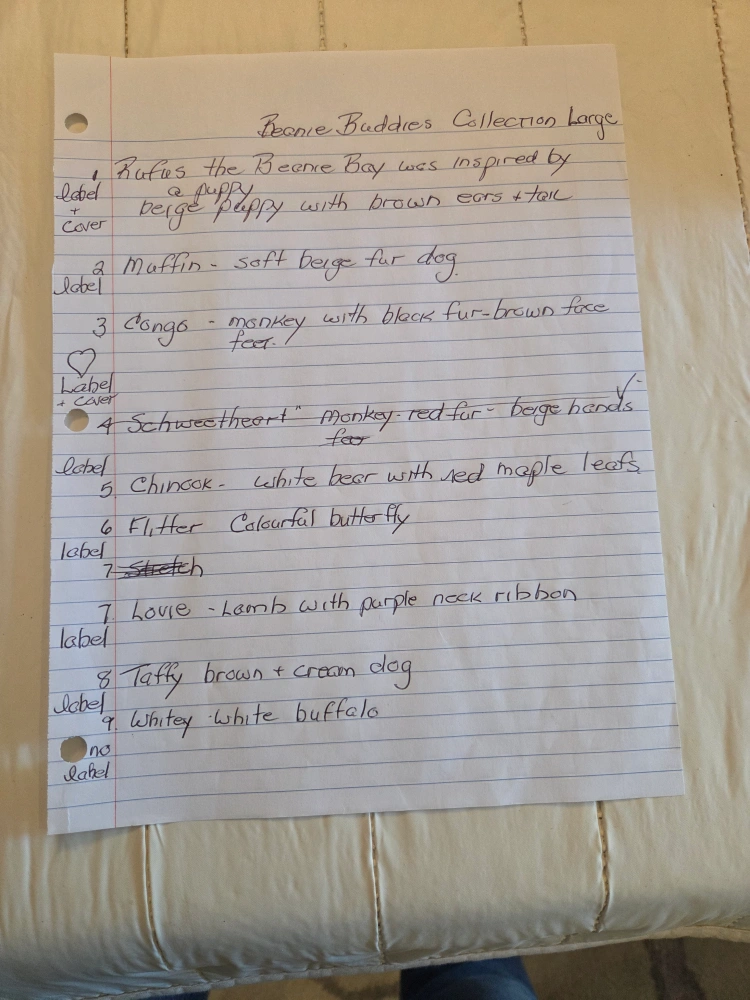 Beanie Buddies Collection Large
1 Rufus the Beanie Bay was inspired by
label a puppy
+ beige puppy with brown ears + tail
cover
2 Muffin - soft beige fur dog.
label
3 Congo - monkey with black fur - brown face
feet.
♡
Label
+ cover
4 Schweetheart" monkey - red fur - beige hands
feet
label
5 Chinook - white bear with red maple leafs
6 Flitter Colourful butterfly
label
7 Stretch
7. Lovie - Lamb with purple neck ribbon
label
8 Taffy brown + cream dog
label
9. Whitey - white buffalo
no
label